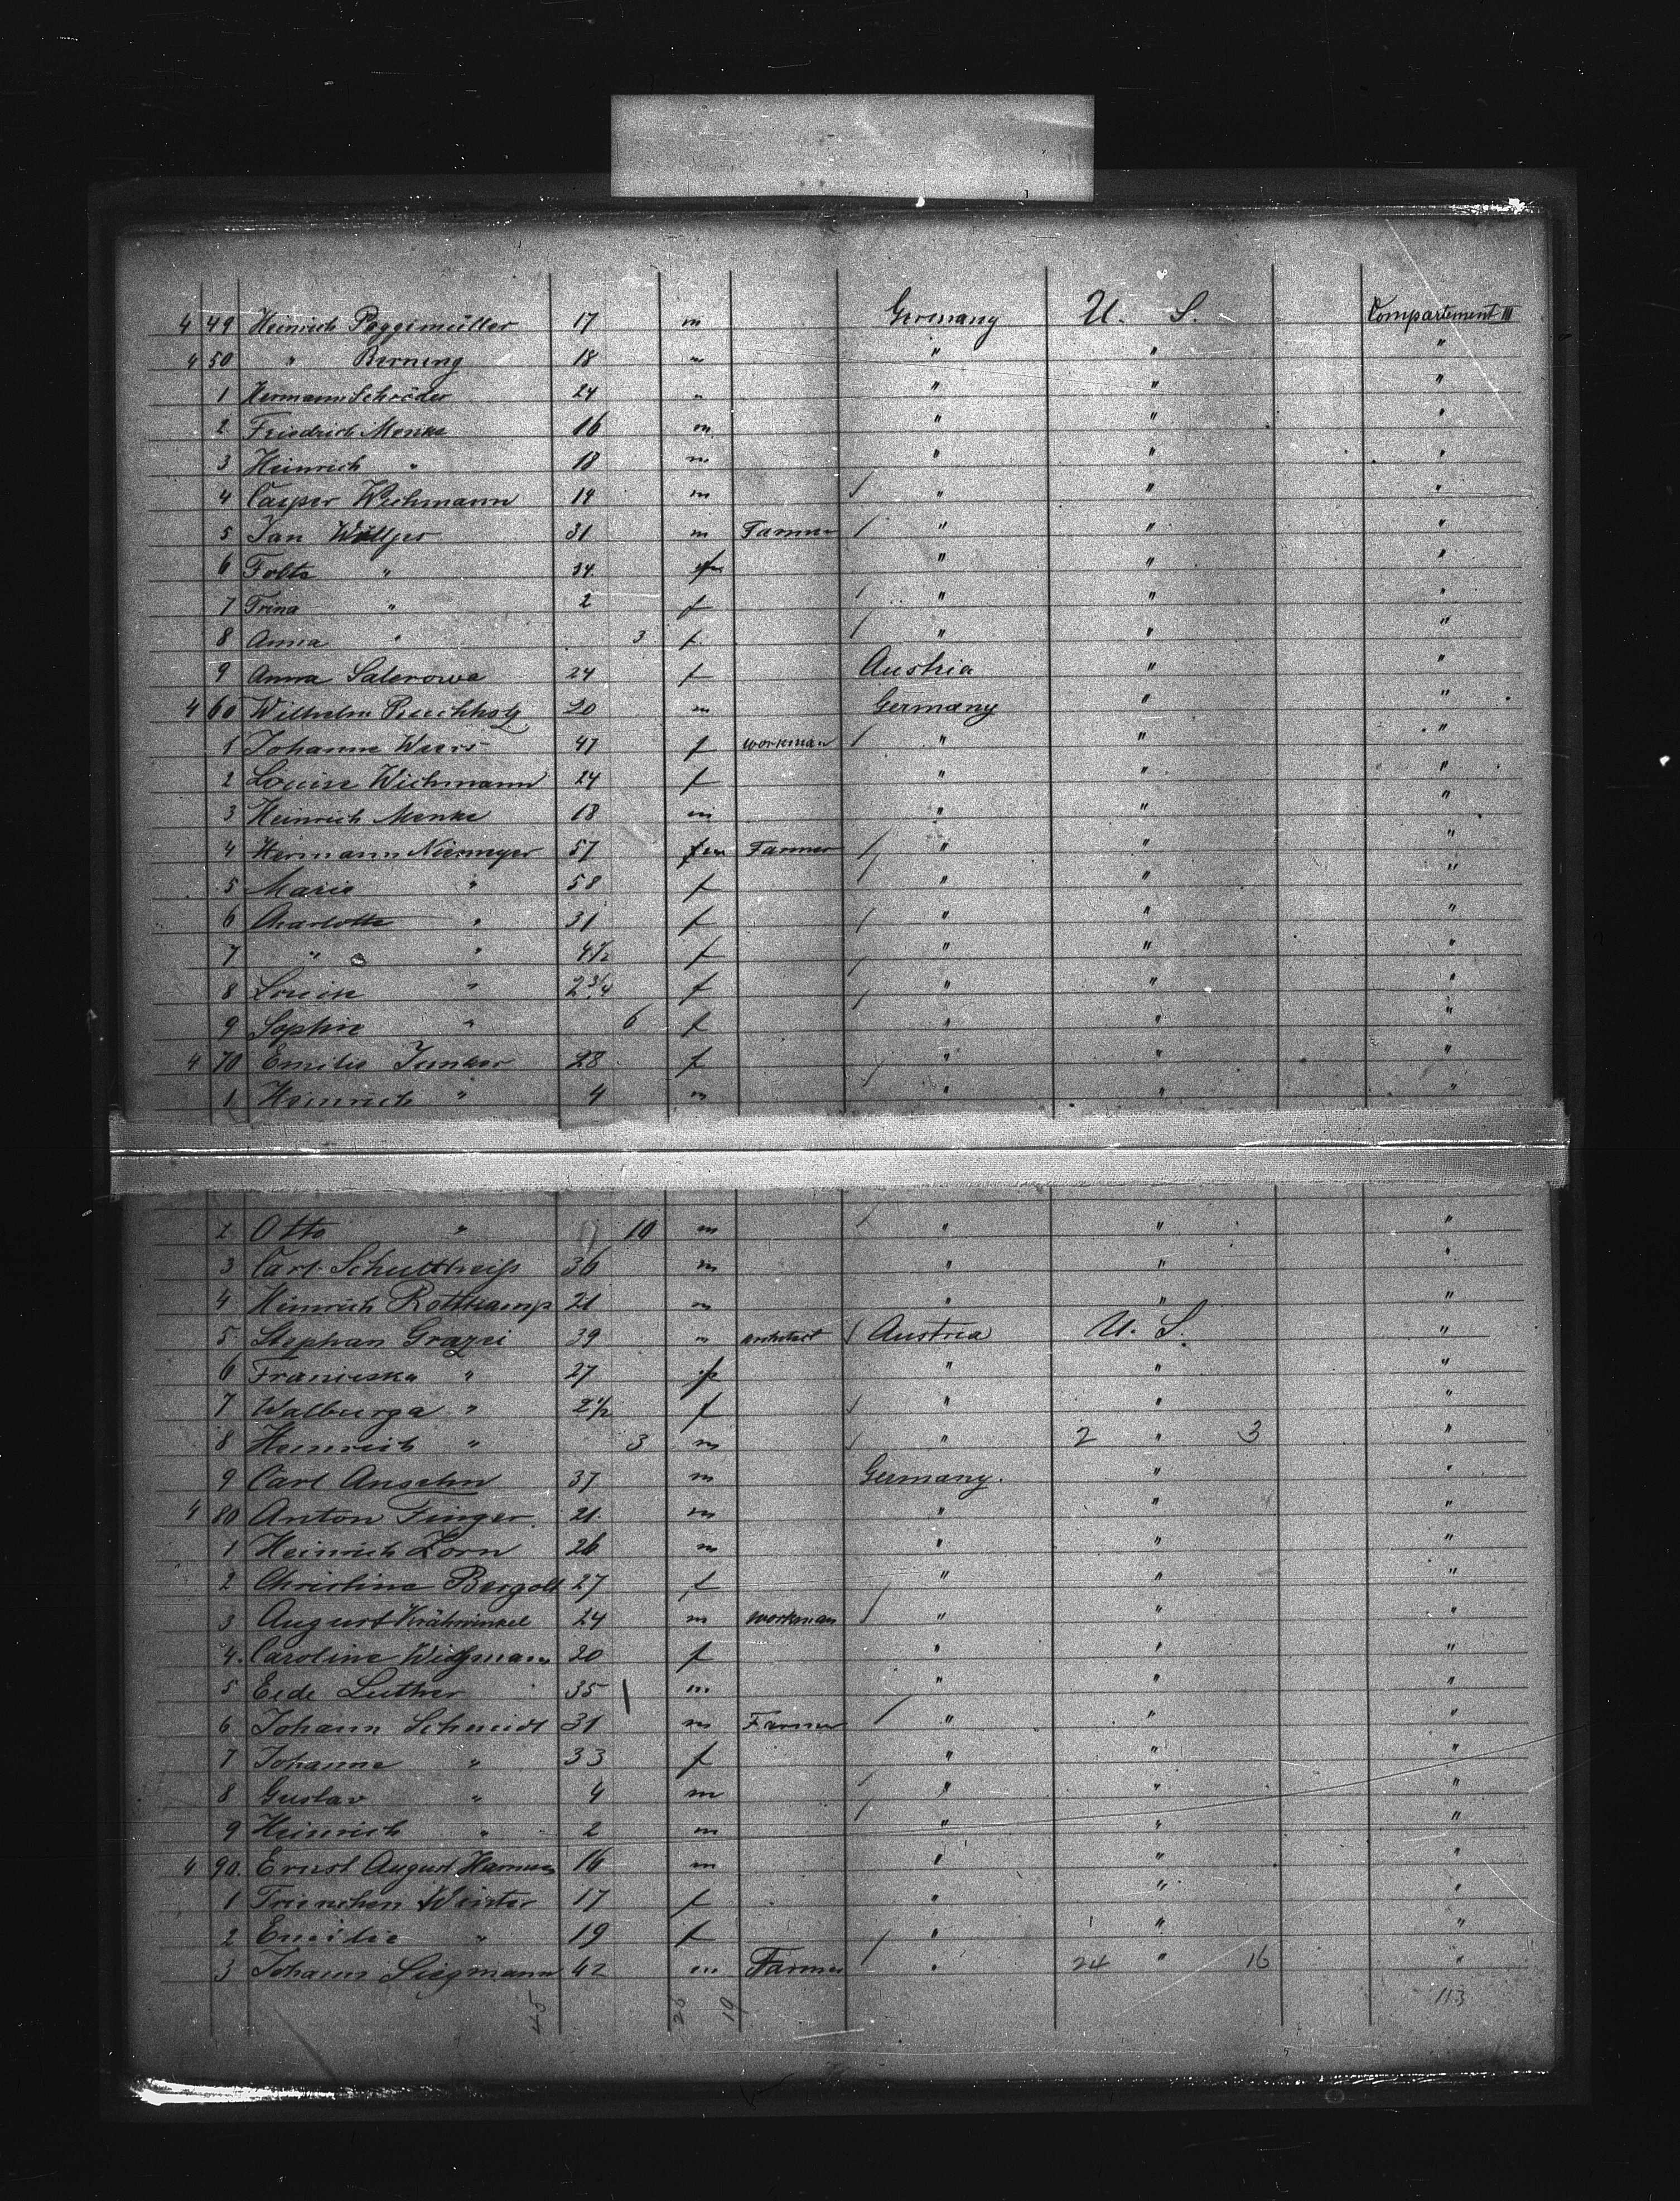 4 49 Heinrich Poggimüller 17 m Germany U. S. Kompartement III
4 50 " Berning 18 m " " "
1 Hermann Schröder 24 " " " "
2 Friedrich Menke 16 m " " "
3 Heinrich " 18 m " " "
4 Casper Wichmann 14 m " " "
5 Jan 31 m Farmer " " "
6 " 34 f " " "
7 Trina " 2 f " " "
8 Anna " 3 f " " "
9 Anna Salerowa 24 f Austria " "
4 60 Wilhelm 20 m Germany " "
1 Johanne 47 f workman " " "
2 Louise Wichmann 24 f " " "
3 Heinrich Menke 18 m " " "
4 Hermann Niemeyer 57 m Farmer " " "
5 Marie " 58 f " " "
6 Charlotte " 31 f " " "
7 " " 4½ f " " "
8 Louise " 2¾ f " " "
9 Sophie " 6 f " " "
4 70 Emilie Junker 28 f " " "
1 Heinrich " 4 m " " "
2 Otto " 10 m " " "
3 Carl Schultheiss 36 m " " "
4 Heinrich Rottkamp 21 m " " "
5 Stephan Grazei 39 " architect Austria U. S. "
6 Franciska " 27 f " " "
7 Walburga " 2½ f " " "
8 Heinrich " 3 m " 2 " 3 "
9 Carl Anselm 37 m Germany. " "
4 80 Anton Finger 21 m " " "
1 Heinrich Zorn 26 m " " "
2 Christine Bergolt 27 f " " "
3 August Krähwinkel 24 m workman " " "
4. Caroline 20 f " " "
5 Eede Luther 35 m " " "
6 Johann Schmidt 31 m Farmer " " "
7 Johanne " 33 f " " "
8 Gustav " 4 m " " "
9 Heinrich " 2 m " " "
4 90. Ernst August 16 m " " "
1 Trienchen Winter 17 f " " "
2 Emilie " 19 f " 1 " "
3 Johann Siegmann 42 m Farmer " 24 " 16 "
45 26 19 113